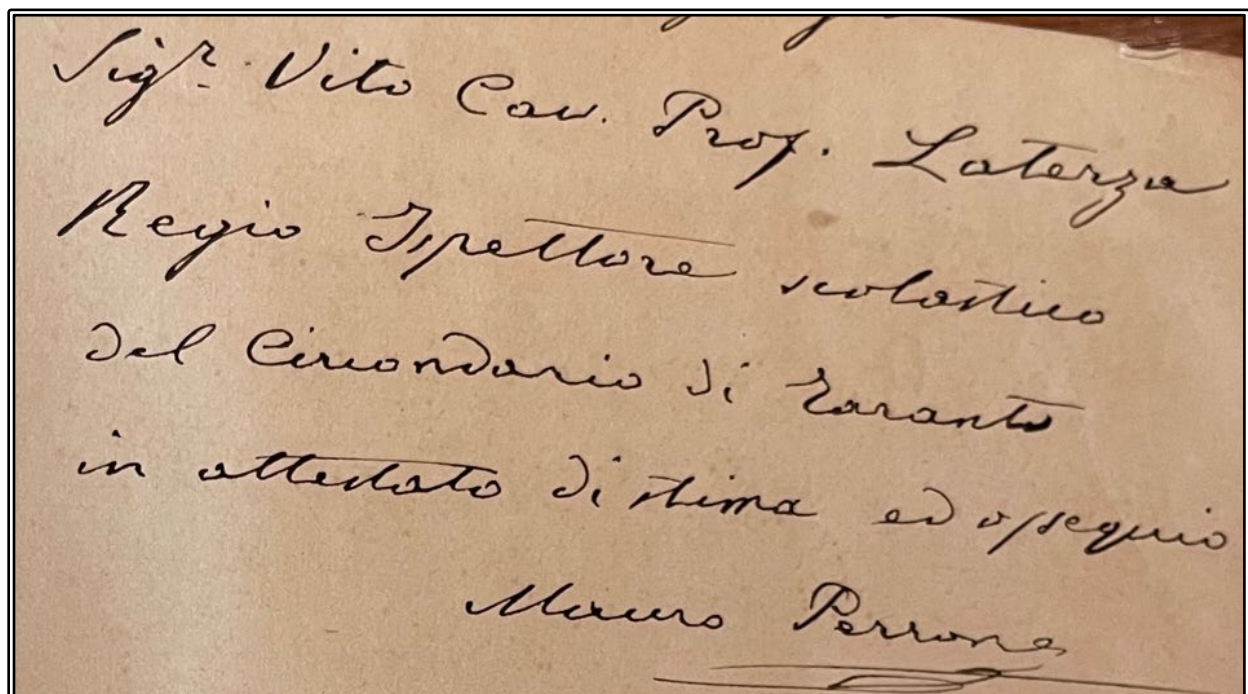 Sigr. Vito Cav. Prof. Laterza
Regio Ispettore scolastico
del Circondario di Taranto
in attestato di stima ed ossequio
Mauro Perrone